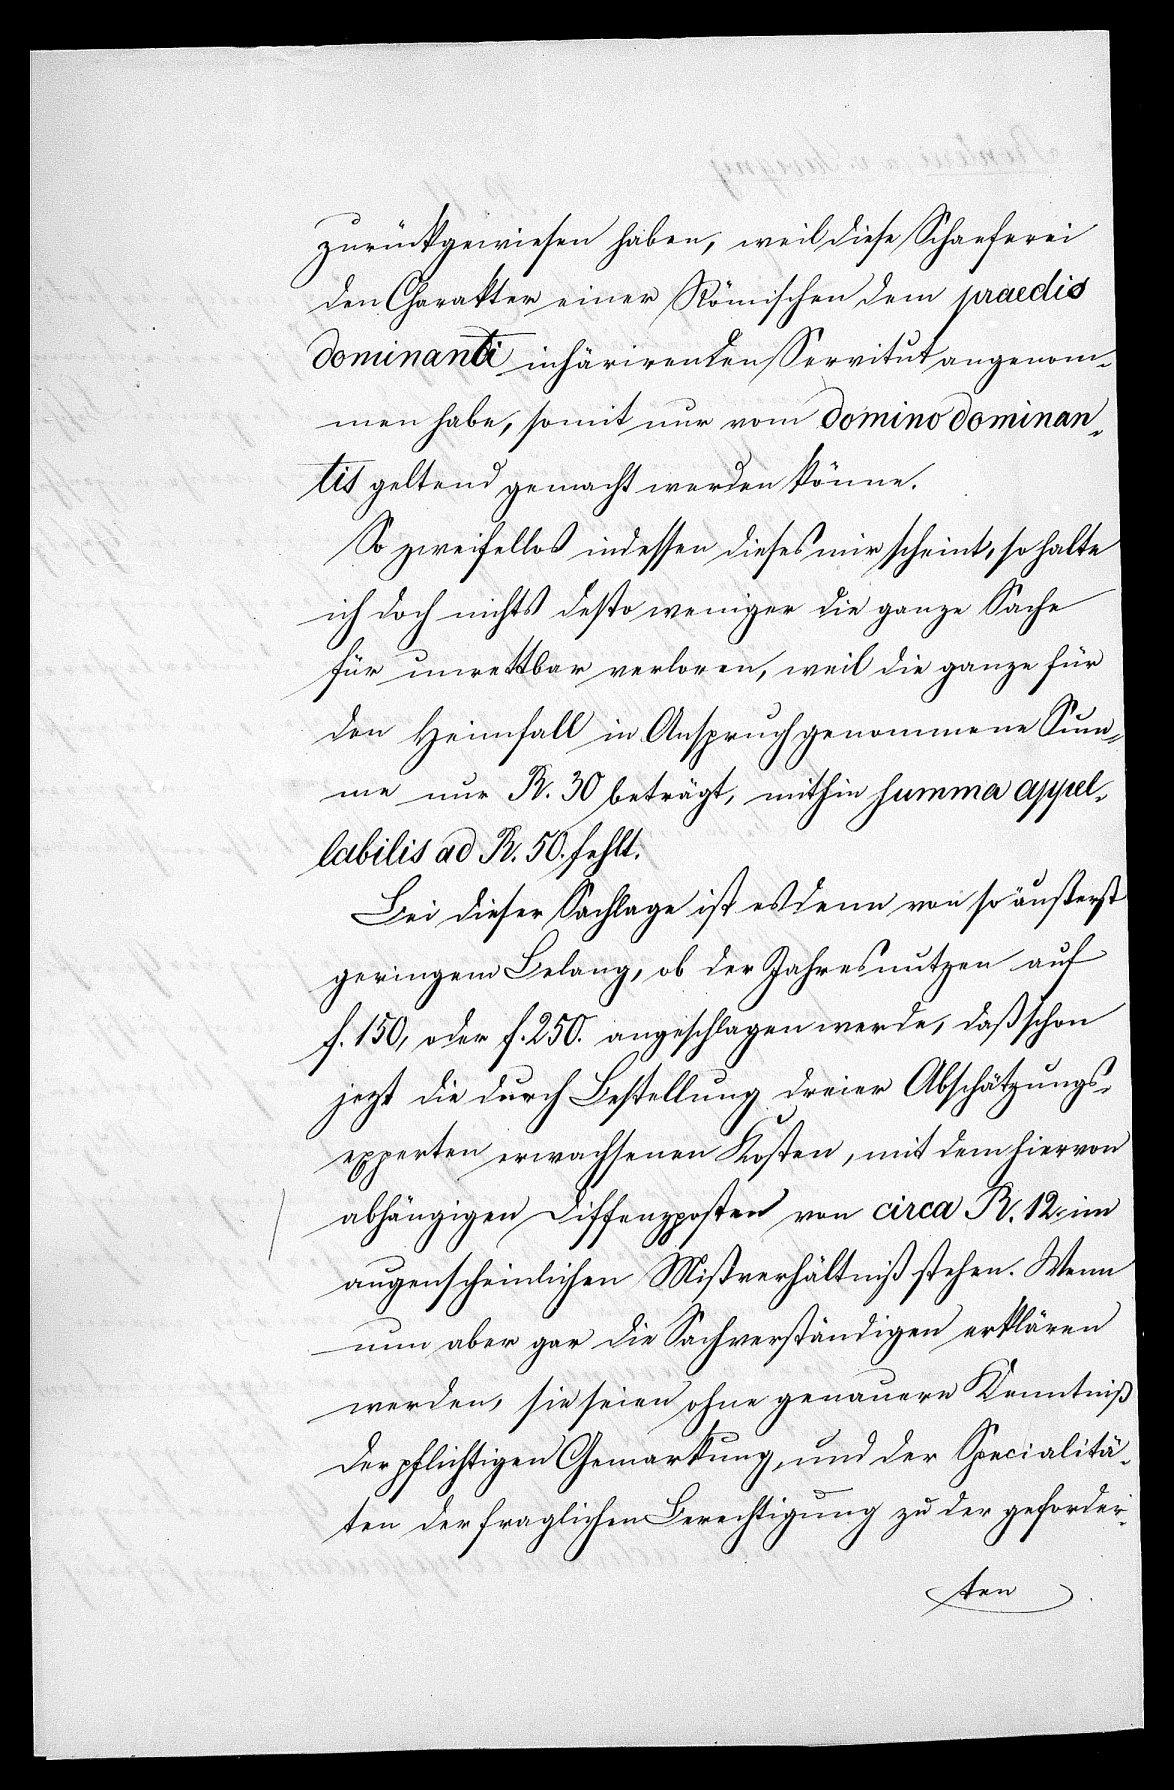 zurückgewiesen haben, weil diese Schaeferei
den Charakter einer Römischen dem praedio
dominanti inhärirenden Servitut angenom-
men habe, somit nur vom domino dominan-
tis geltend gemacht werden könne.
So zweifellos indessen dieses mir scheint, so halte
ich doch nichts desto weniger die ganze Sache
für unrettbar verloren, weil die ganze für
den Heimfall in Anspruch genommene Sum-
me nur R. 30 beträgt, mithin summa appel-
labilis ad R. 50. fehlt.
Bei dieser Sachlage ist es denn von so äußerst
geringem Belang, ob der Jahresnutzen auf
f. 150, oder f. 250. angeschlagen werde, daß schon
jezt die durch Bestellung dreier Abschätzungs-
experten erwachsenen Kosten, mit dem hiervon
abhängigen Diffenzposten von circa R. 12. im
augenscheinlichen Mißverhältniß stehen. Wenn
nun aber gar die Sachverständigen erklären
werden, sie seien ohne genauere Kenntniß
der pflichtigen Gemarkung, und der Specialitä-
ten der fraglichen Berechtigung zu der geforder-
ten